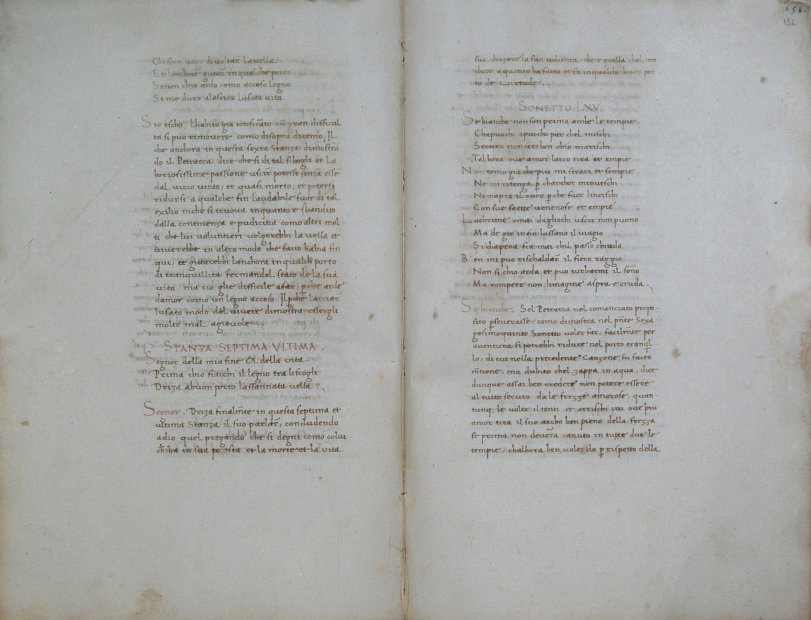 Chi son vago di voltar la vella
Et l anchore gittar in qualche porto
Se non chio ardo como acceso legno
Si me duro a lassar lusata vita
S io escho. Lhabito gia confirmato cum gran difficul
ta si po rimovere como disopra dicemo. Il
che anchora in questa sexta Stanza dimostran
do il Petrarca dice che si di tal
passione uscir potesse senza esse
dal vicio vinto, et quasi morto, et potersi
ridursi a qualche fin laudabile fuor di tal
exilio in che si truova inquanto e sbandito
dalla continenza e pudicitia como altri mol
ti che lui voluntieri volgerebbi la vella et
viverebbe in altro modo che facto habia fin
qui, et gittarebbi lanchora in qualche porto
di tranquillita fermandol stato de la sua
vita. ma cio gli e difficile
damor como un legno acceso. Il lasciar
lusato modo del vivere dimostra essergli
molto mal agevole
STANZA SEPTIMA VLTIMA.
Segnor della mia fine et della vita
Prima chio fiacchi il legno tra li scogli
Driza a buon porto laffannata vella
Segnor. Driza finalmente in questa septima et
ultima Stanza il suo parlar, concludendo
a dio quel pregando che si degni como colui
ch ha in sua po sta et la morte et la vita
156.
152
sua, drizare la sua volunta che e quella chel con
duce a in qualche buon por
to de virtude.
SONETTO LXV.
Se bianche non son prima ambe le tempie
Chapuocho apuocho par chel mischi
Securo non sero ben chio marischi
Talhora ove amor larco tira et empie
Non temo gia che piu mi strati et scempie
Ne mi ritenga perche anchor minveschi
Ne mapra il cuor perche fuor lincischi
Con sue saette venenose et empie
Lachrime omai dagliochi uscir non puono
Ma de gire in fin lassano il viagio
Si chapena fia mai chil passo chiuda
Ben mi puo rischaldar il fiero raggio
Non si chio arda et puo turbarmi il sono
Ma rompere non limagine aspra e cruda
Se bianche. Sel Petrarca nel comenciato propo-
sito perseverasse, como dimostra nel presente Sexa
gesimoquinto Sonetto voler far, facilmente per
aventura si potrebbi ridure nel porto tranquil
lo, di cui nella precedente Canzone fu facto
mentione, ma dubito chel zappa in aqua, dice
dunque assai ben credere non potere essere
al tutto securo da le frezze amorose, quan
tunque le volte il tenti et arrischi ivi ove piu
amor tira il suo archo ben pieno della frezza
se prima non devera canuto in tutte due le
tempie, chalhora ben volendo per rispetto della